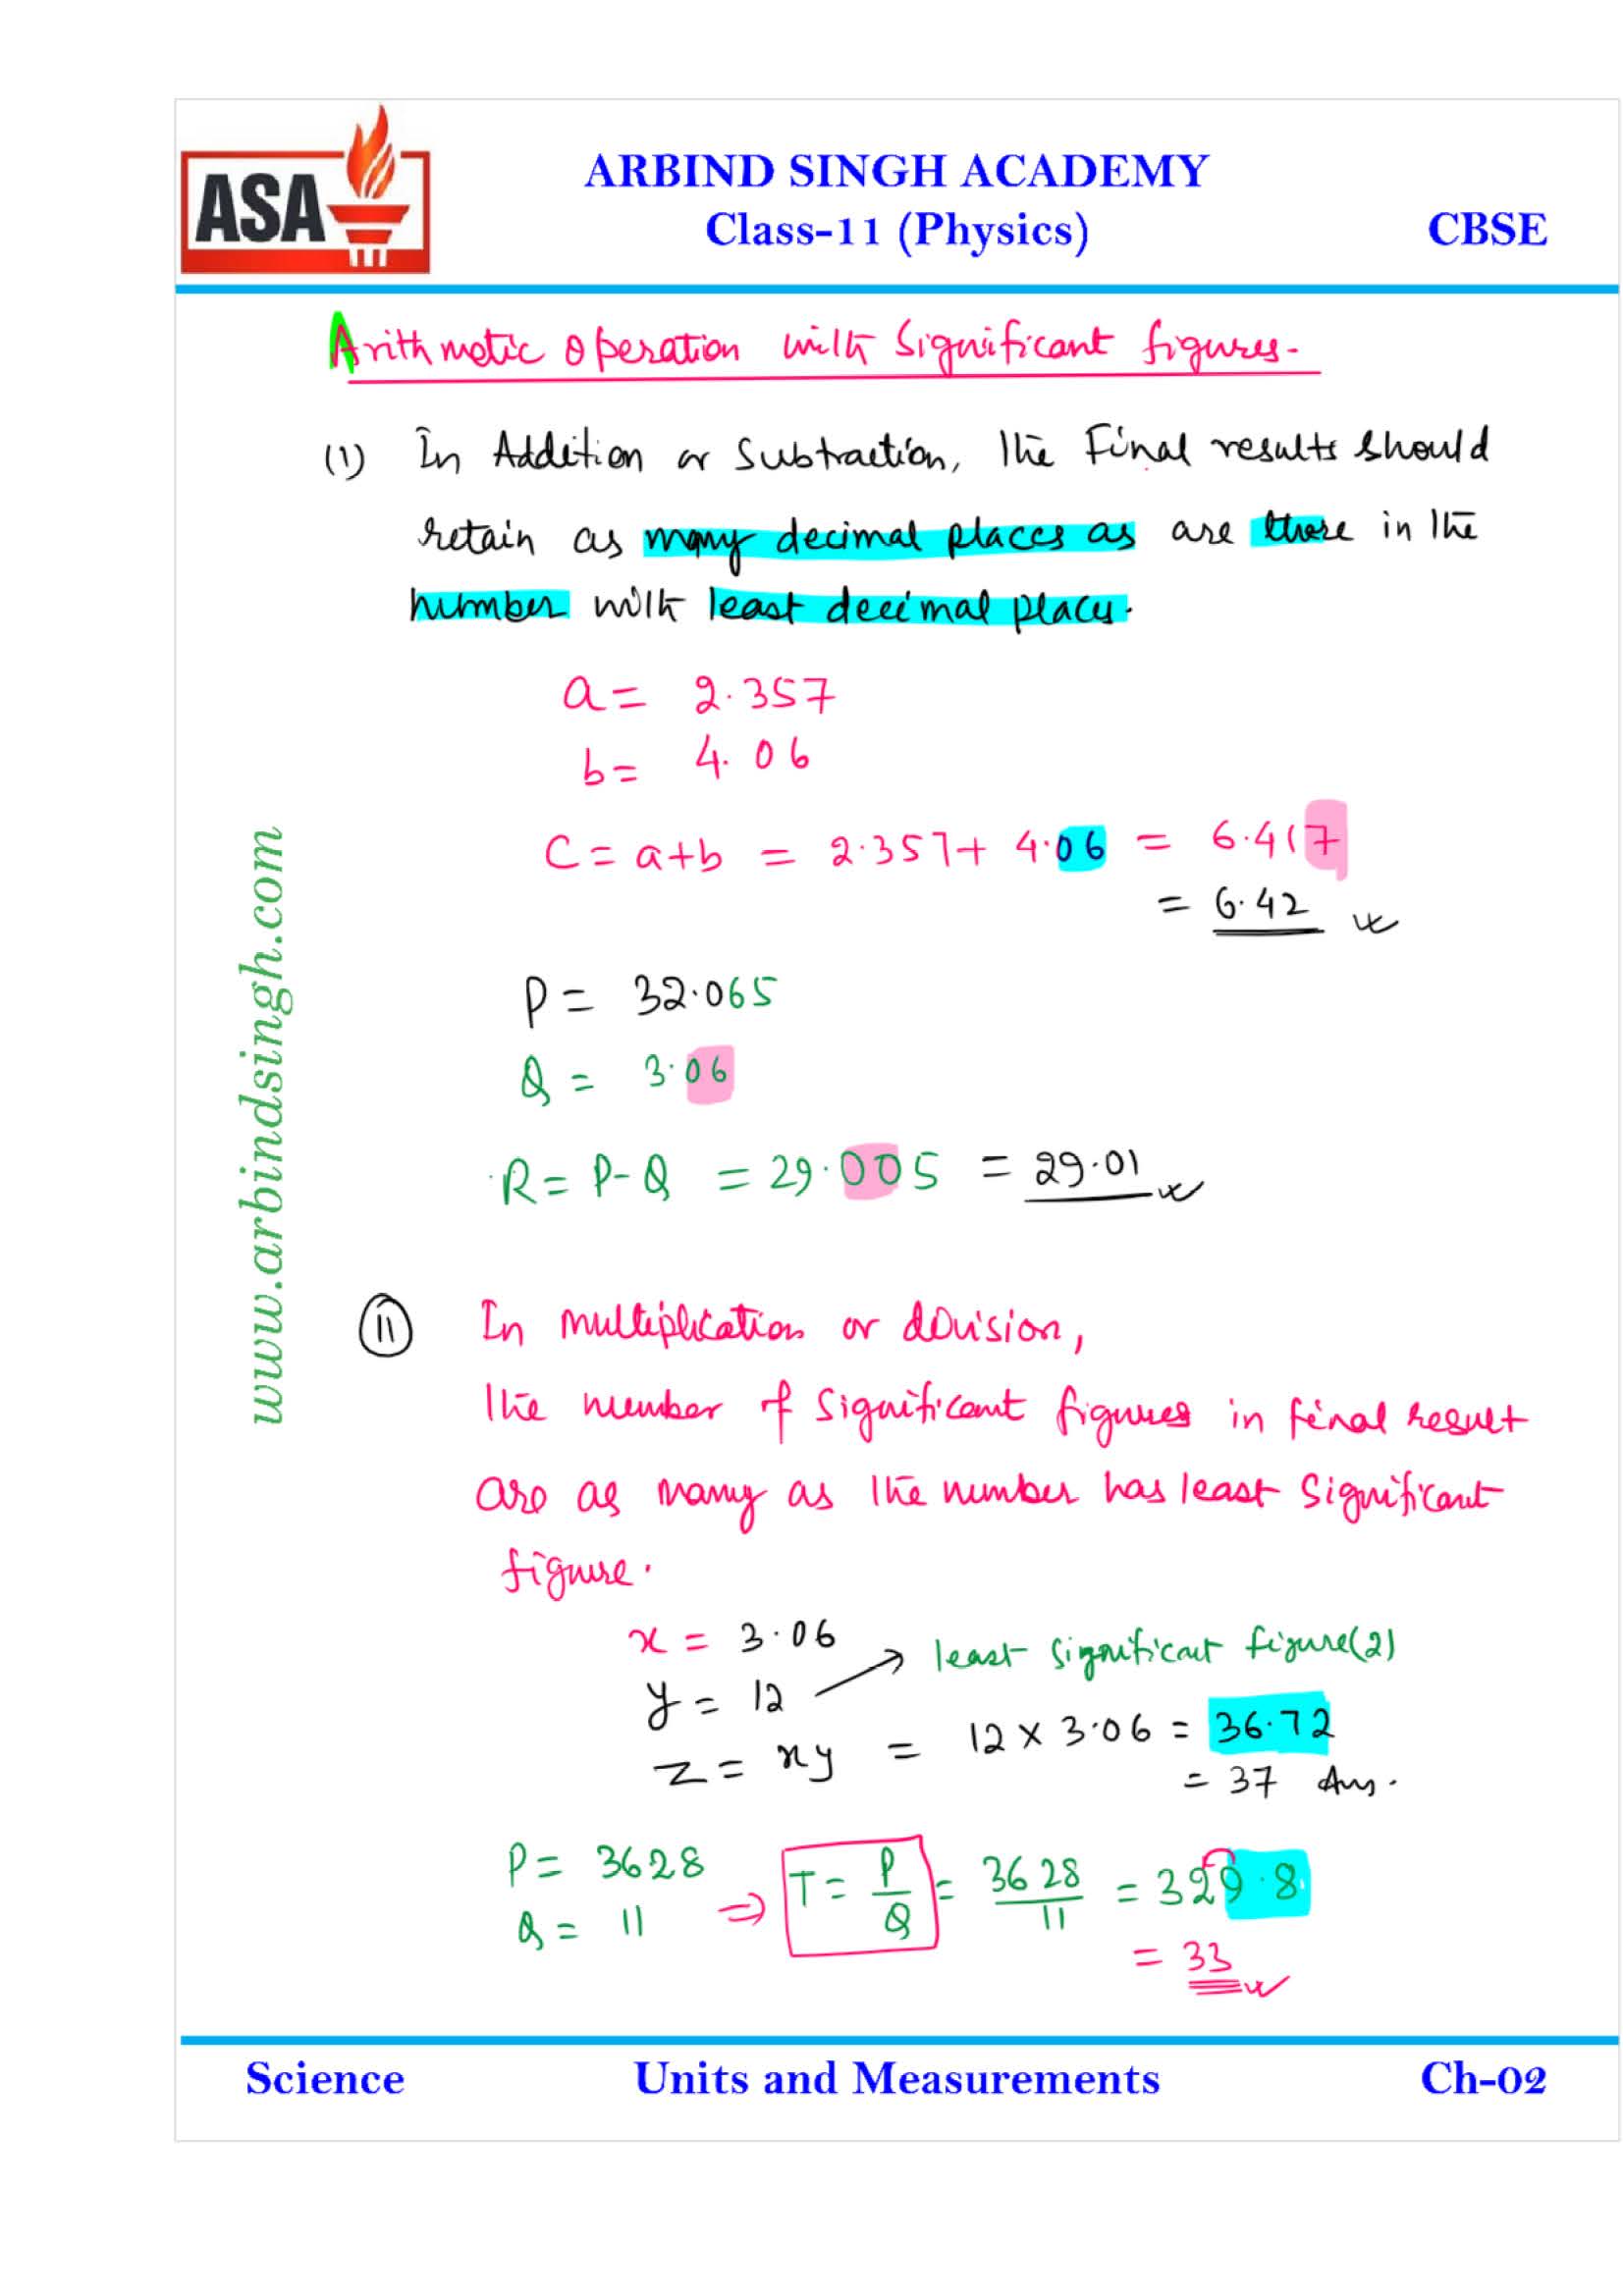 ASA
ARBIND SINGH ACADEMY
Class-11 (Physics)
CBSE
Arithmetic operation with significant figures-
(1) In Addition or Subtraction, the Final results should
retain as many decimal places as are there in the
number with least decimal places.
a = 2.357
b = 4.06
C = a+b = 2.357 + 4.06 = 6.417
= 6.42
P = 32.065
Q = 3.06
R = P-Q = 29.005 = 29.01
(ii) In multiplication or division,
the number of significant figures in final result
are as many as the number has least significant
figure.
x = 3.06
least significant figure(2)
y = 12
z = xy = 12 × 3.06 = 36.72
= 37 Ans.
P = 3628
Q = 11
⇒ T = P/Q = 3628/11 = 329.8
= 33
www.arbindsingh.com
Science
Units and Measurements
Ch-02